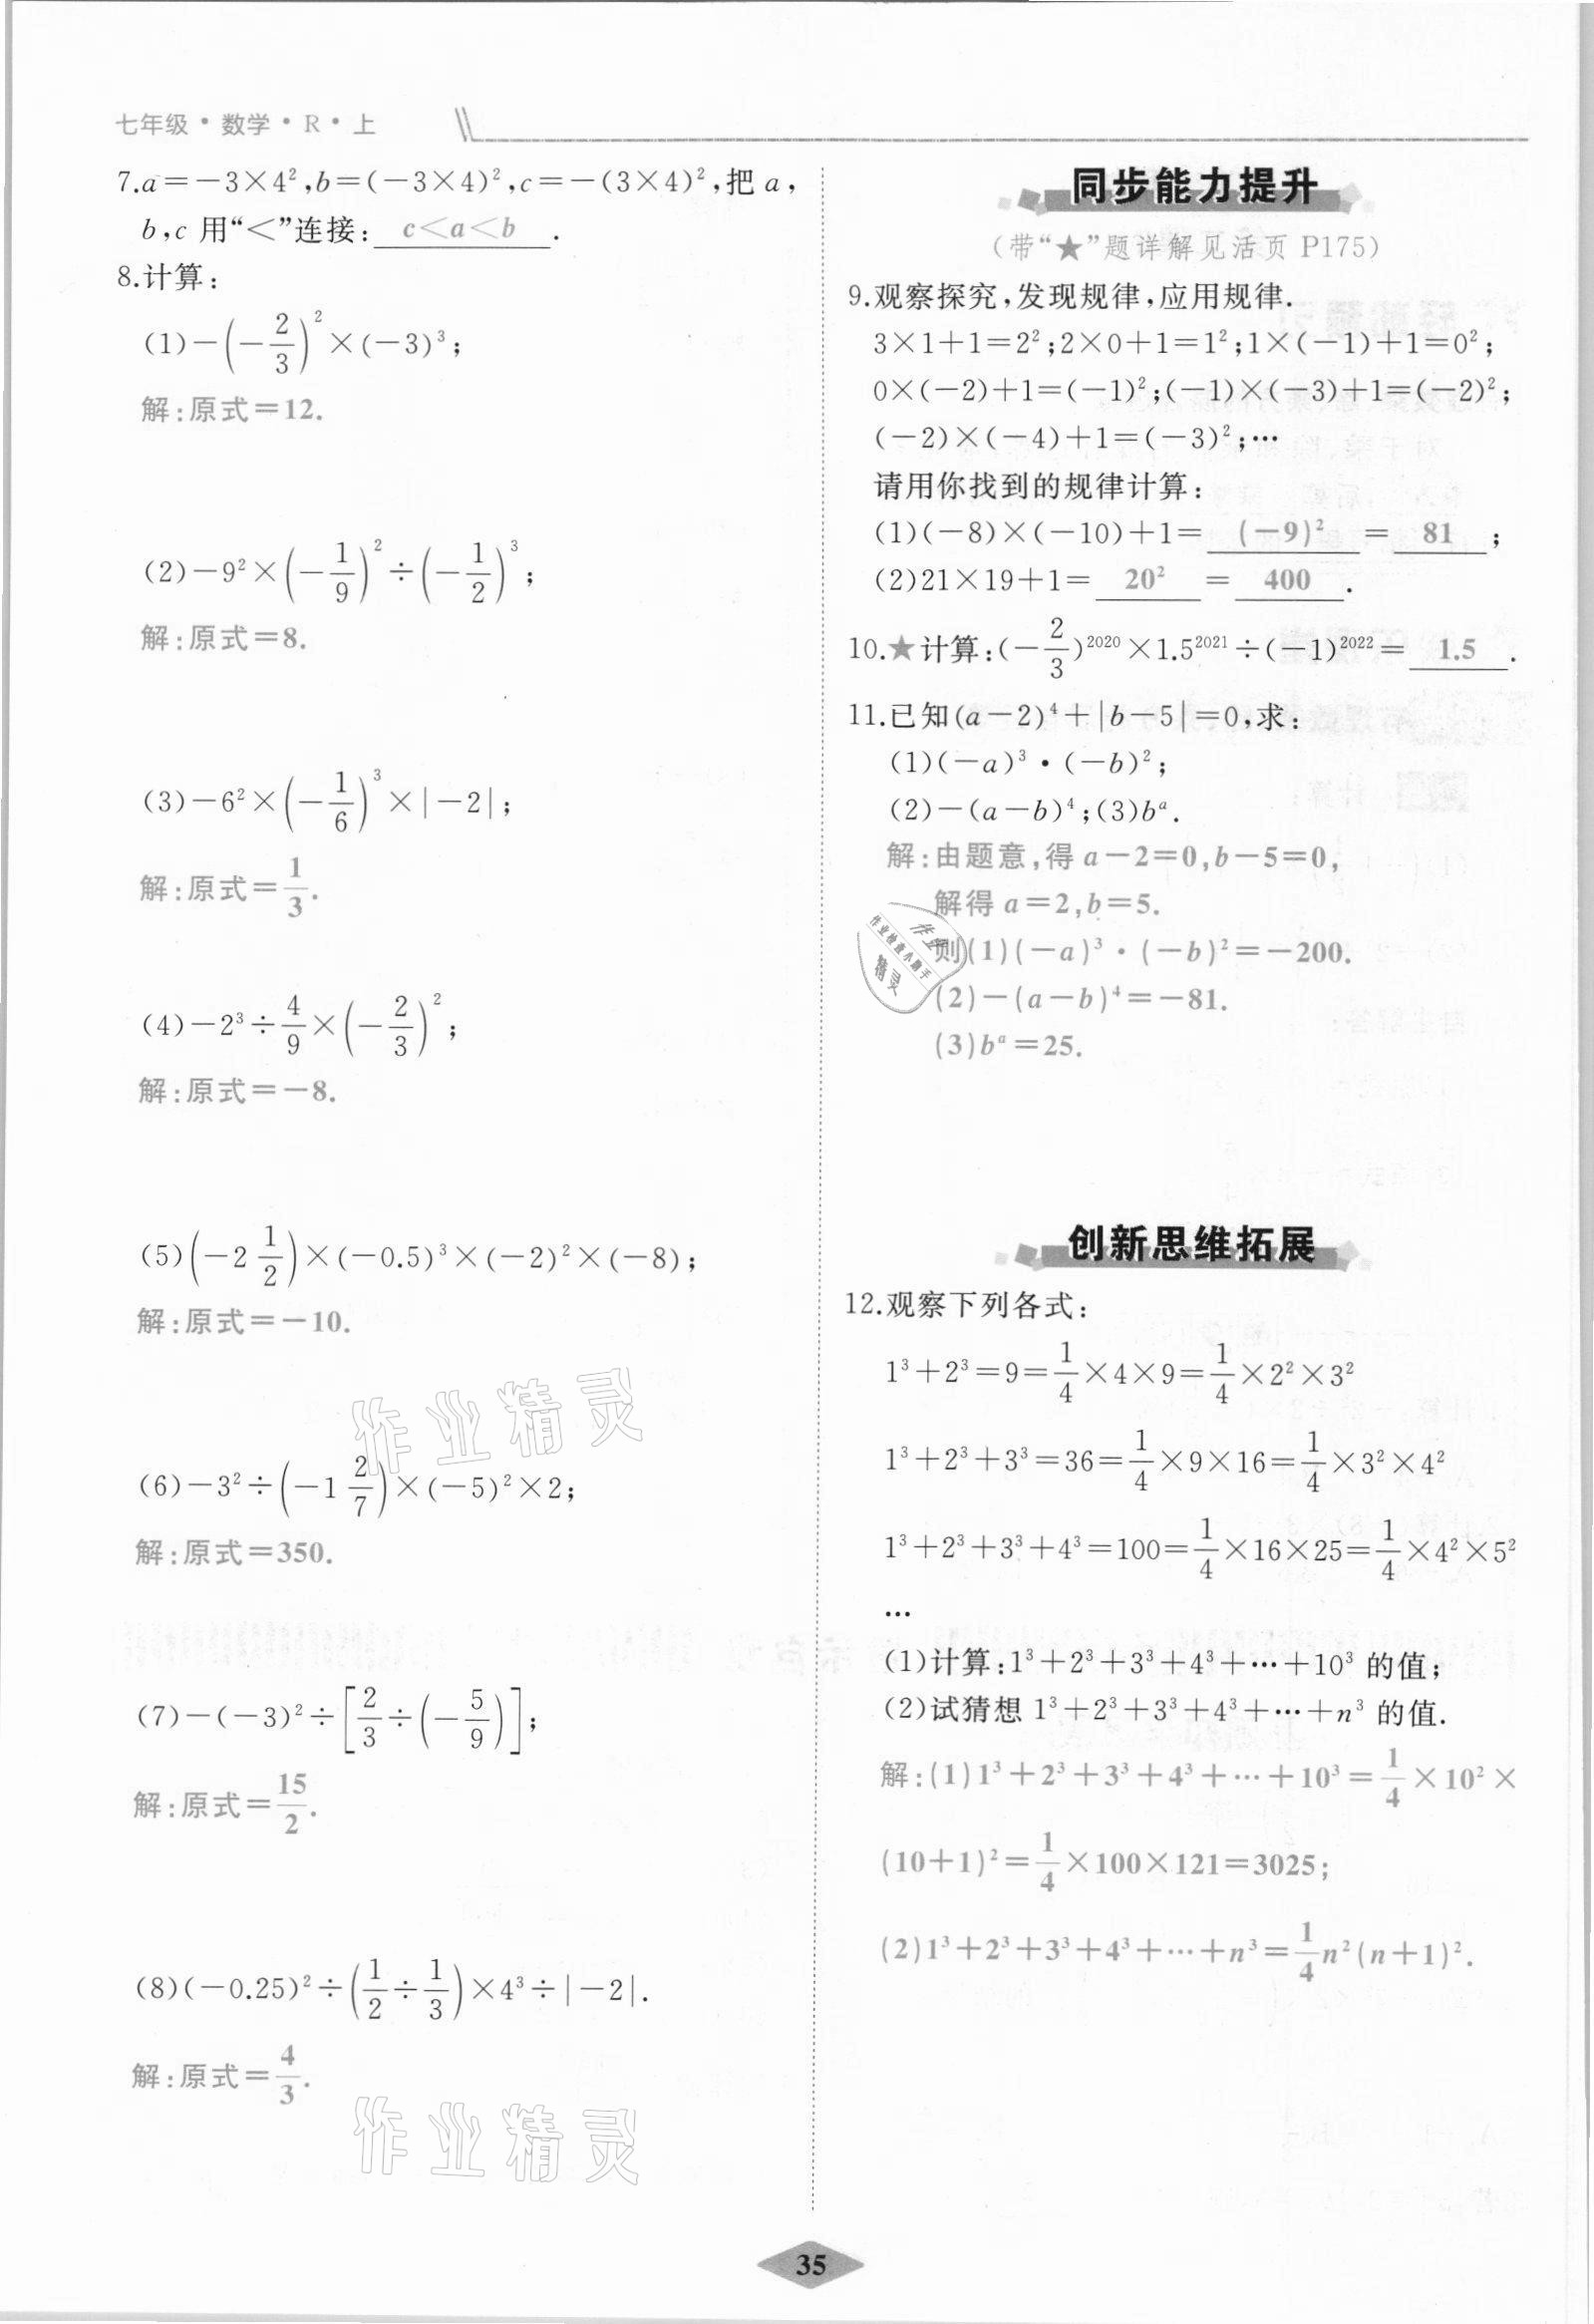 七年级·数学·R·上
7.a=-3×4²,b=(-3×4)²,c=-(3×4)²,把 a,
b,c 用“<”连接: c<a<b .
8.计算:
(1)-(-2/3)²×(-3)³;
解:原式=12.
(2)-9²×(-1/9)²÷(-1/2)³;
解:原式=8.
(3)-6²×(-1/6)³×|-2|;
解:原式=1/3.
(4)-2³÷4/9×(-2/3)²;
解:原式=-8.
(5)(-2 1/2)×(-0.5)³×(-2)²×(-8);
解:原式=-10.
(6)-3²÷(-1 2/7)×(-5)²×2;
解:原式=350.
(7)-(-3)²÷[2/3÷(-5/9)];
解:原式=15/2.
(8)(-0.25)²÷(1/2÷1/3)×4³÷|-2|.
解:原式=4/3.
同步能力提升
(带“★”题详解见活页 P175)
9.观察探究,发现规律,应用规律.
3×1+1=2²;2×0+1=1²;1×(-1)+1=0²;
0×(-2)+1=(-1)²;(-1)×(-3)+1=(-2)²;
(-2)×(-4)+1=(-3)²;…
请用你找到的规律计算:
(1)(-8)×(-10)+1= (-9)² = 81 ;
(2)21×19+1= 20² = 400 .
10.★计算:(-2/3)²⁰²⁰×1.5²⁰²¹÷(-1)²⁰²²= 1.5 .
11.已知(a-2)⁴+|b-5|=0,求:
(1)(-a)³·(-b)²;
(2)-(a-b)⁴;(3)bᵃ.
解:由题意,得 a-2=0,b-5=0,
解得 a=2,b=5.
则(1)(-a)³·(-b)²=-200.
(2)-(a-b)⁴=-81.
(3)bᵃ=25.
作业
作业检查小助手
精灵
创新思维拓展
12.观察下列各式:
1³+2³=9=1/4×4×9=1/4×2²×3²
1³+2³+3³=36=1/4×9×16=1/4×3²×4²
1³+2³+3³+4³=100=1/4×16×25=1/4×4²×5²
…
(1)计算:1³+2³+3³+4³+…+10³ 的值;
(2)试猜想 1³+2³+3³+4³+…+n³ 的值.
解:(1)1³+2³+3³+4³+…+10³=1/4×10²×
(10+1)²=1/4×100×121=3025;
(2)1³+2³+3³+4³+…+n³=1/4n²(n+1)².
作业精灵
作业精灵
35